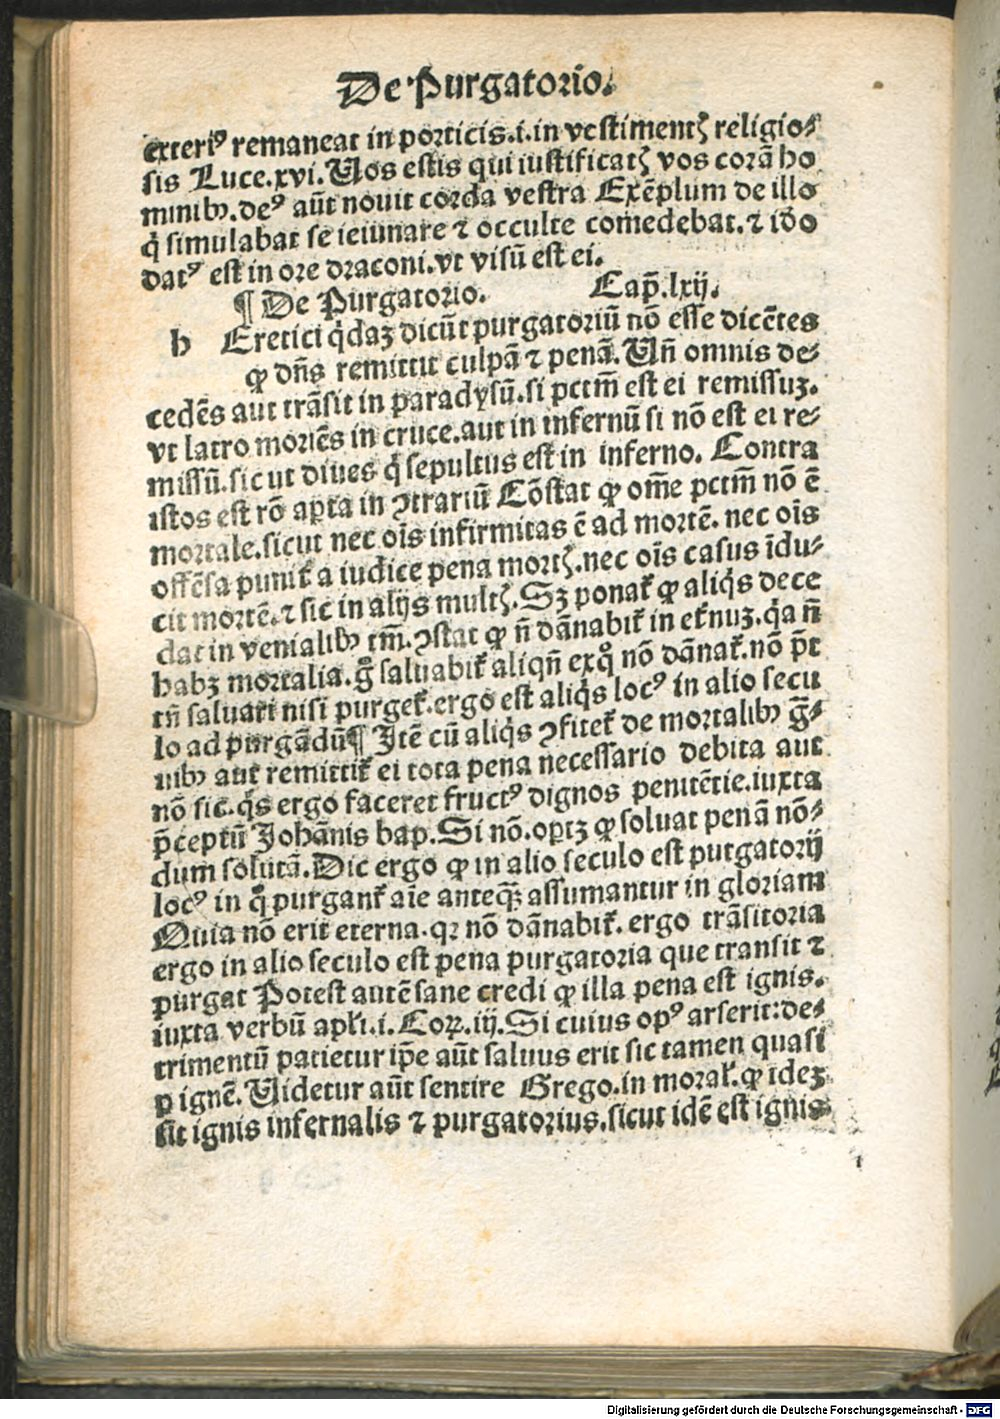 De Purgatorio.
exteri⁹ remaneat in porticis.i.in vestimentꝭ religio⸗
sis Luce.xvi.Uos estis qui iustificatꝭ vos corā ho
minibꝰ.de⁹ aūt nouit corda vestra Exēplum de illo
q̇ simulabat se ieiunare ⁊ occulte comedebat.⁊ iō
dat⁹ est in ore draconi.vt visū est ei.
¶ De Purgatorio. Cap̄.lxij.
h Eretici q̇daꝫ dicūt purgatoriū nō esse dicētes
ꝙ dn̄s remittit culpā ⁊ penā.Un̄ omnis de⸗
cedēs aut trāsit in paradysū.si pctm̄ est ei remissuꝫ.
vt latro moriēs in cruce.aut in infernū si nō est ei re⸗
missū.sic ut diues q̇ sepultus est in inferno. Contra
istos est rō aꝑta in ꝯtrariū Cōstat ꝙ om̄e pctm̄ nō ē
mortale.sicut nec oīs infirmitas ē ad mortē. nec oīs
offēsa punit᷑ a iudice pena mortꝭ.nec oīs casus īdu⸗
cit mortē.⁊ sic in alijs multꝭ.Sꝫ ponat᷑ ꝙ aliq̇s dece
dat in venialibꝰ tm̄.ꝯstat ꝙ n̄ dānabit᷑ in et᷑nuꝫ.q̇a n̄
habꝫ mortalia.gͦ saluabit᷑ aliqn̄ exqͦ nō dānat᷑.nō p̄t
tn̄ saluari nisi purget᷑.ergo est aliq̇s loc⁹ in alio secu
lo ad purgādū¶ Itē cū aliq̇s ꝯfitet᷑ de mortalibꝰ g̅⸗
uibꝰ aut remittit᷑ ei tota pena necessario debita aut
nō sic.q̇s ergo faceret fruct⁹ dignos penitētie.iuxta
p̄ceptū Johānis bap.Si nō.oꝑtꝫ ꝙ soluat penā nō⸗
dum solutā.Dic ergo ꝙ in alio seculo est purgatorij
loc⁹ in qͦ purgant᷑ aīe anteq̄ꝫ assumantur in gloriam
Quia nō erit eterna.qꝛ nō dānabit᷑. ergo trāsitoria
ergo in alio seculo est pena purgatoria que transit ⁊
purgat Potest autē sane credi ꝙ illa pena est ignis.
iuxta verbū apl̄i.i. Coꝝ.iij.Si cuius op⁹ arserit:de⸗
trimentū patietur ip̄e aūt saluus erit sic tamen quasi
ꝑ ignē.Uidetur aūt sentire Grego.in moral᷑.ꝙ ideꝫ
sit ignis infernalis ⁊ purgatorius.sicut idē est ignis
Digitalisierung gefördert durch die Deutsche Forschungsgemeinschaft - DFG